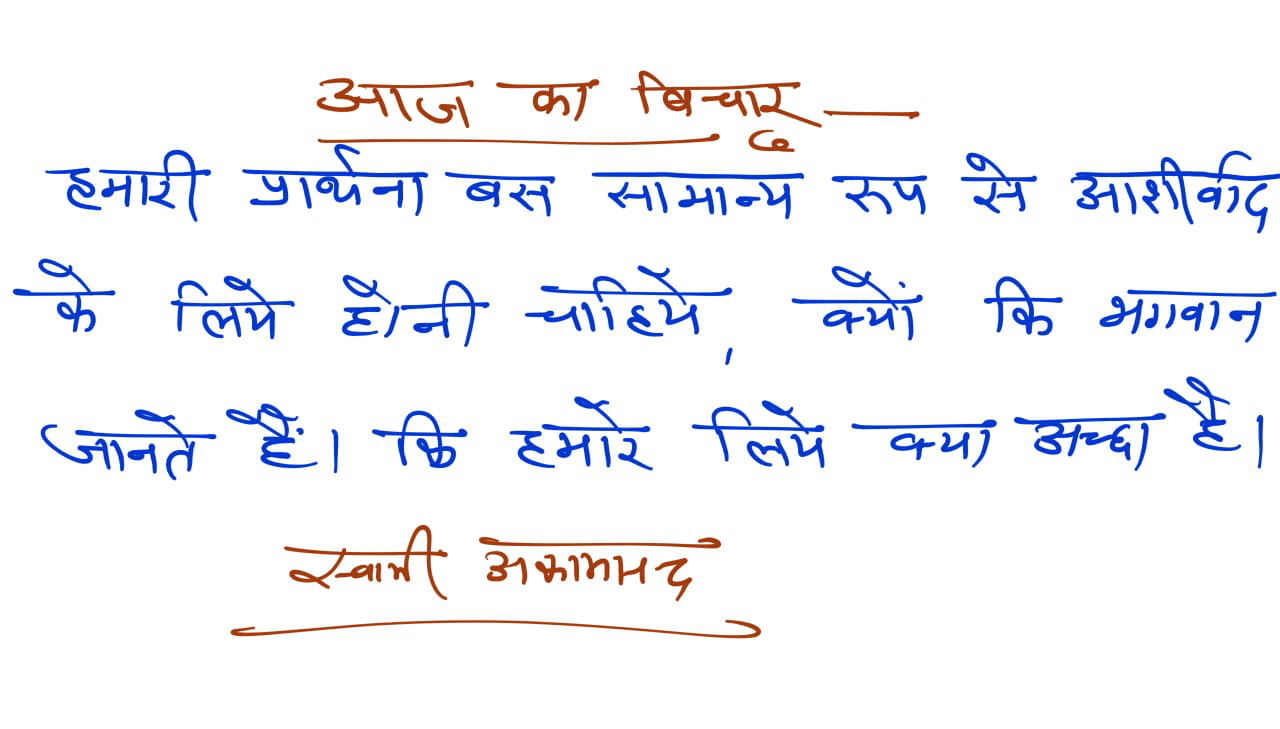 आज का विचार —
हमारी प्रार्थना बस सामान्य रूप से आशीर्वाद
के लिये होनी चाहिये, क्यों कि भगवान
जानते हैं। कि हमारे लिये क्या अच्छा है।
स्वामी